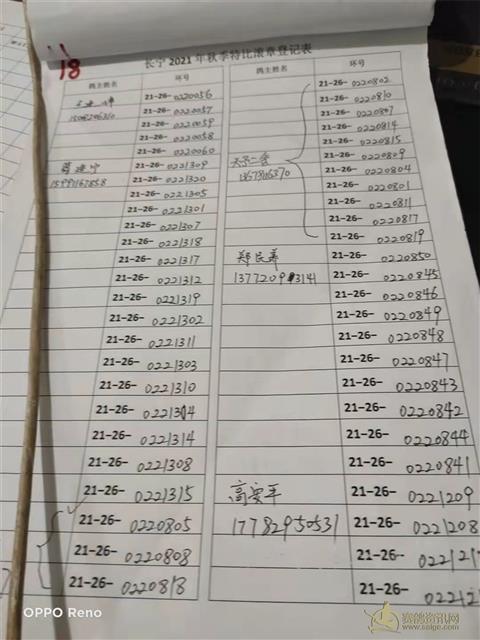 18
长宁 2021 年秋季特比滚章登记表
鸽主姓名 环号 鸽主姓名 环号
21-26-0220056
21-26-0220057
21-26-0220059
21-26-0220058
21-26-0220060
21-26-0221309
15991167858
21-26-0221320
21-26-0221305
21-26-0221301
21-26-0221307
21-26-0221318
21-26-0221317
21-26-0221312
21-26-0221319
21-26-0221302
21-26-0221311
21-26-0221303
21-26-0221310
21-26-0221304
21-26-0221314
21-26-0221308
21-26-0221315
21-26-0220805
21-26-0220808
21-26-0220818
21-26-0220802
21-26-0220810
21-26-0220807
21-26-0220814
21-26-0220815
21-26-0220809
21-26-0220804
21-26-0220801
21-26-0220811
21-26-0220817
21-26-0220819
郑民养
21-26-0220850
21-26-0220845
21-26-0220846
21-26-0220849
21-26-0220848
21-26-0220847
21-26-0220843
21-26-0220842
21-26-0220844
21-26-0220841
高安平
21-26-0221209
17782950531
21-26-0221208
21-26-
21-26-
OPPO Reno
赛鸽资讯网
www.saige.com